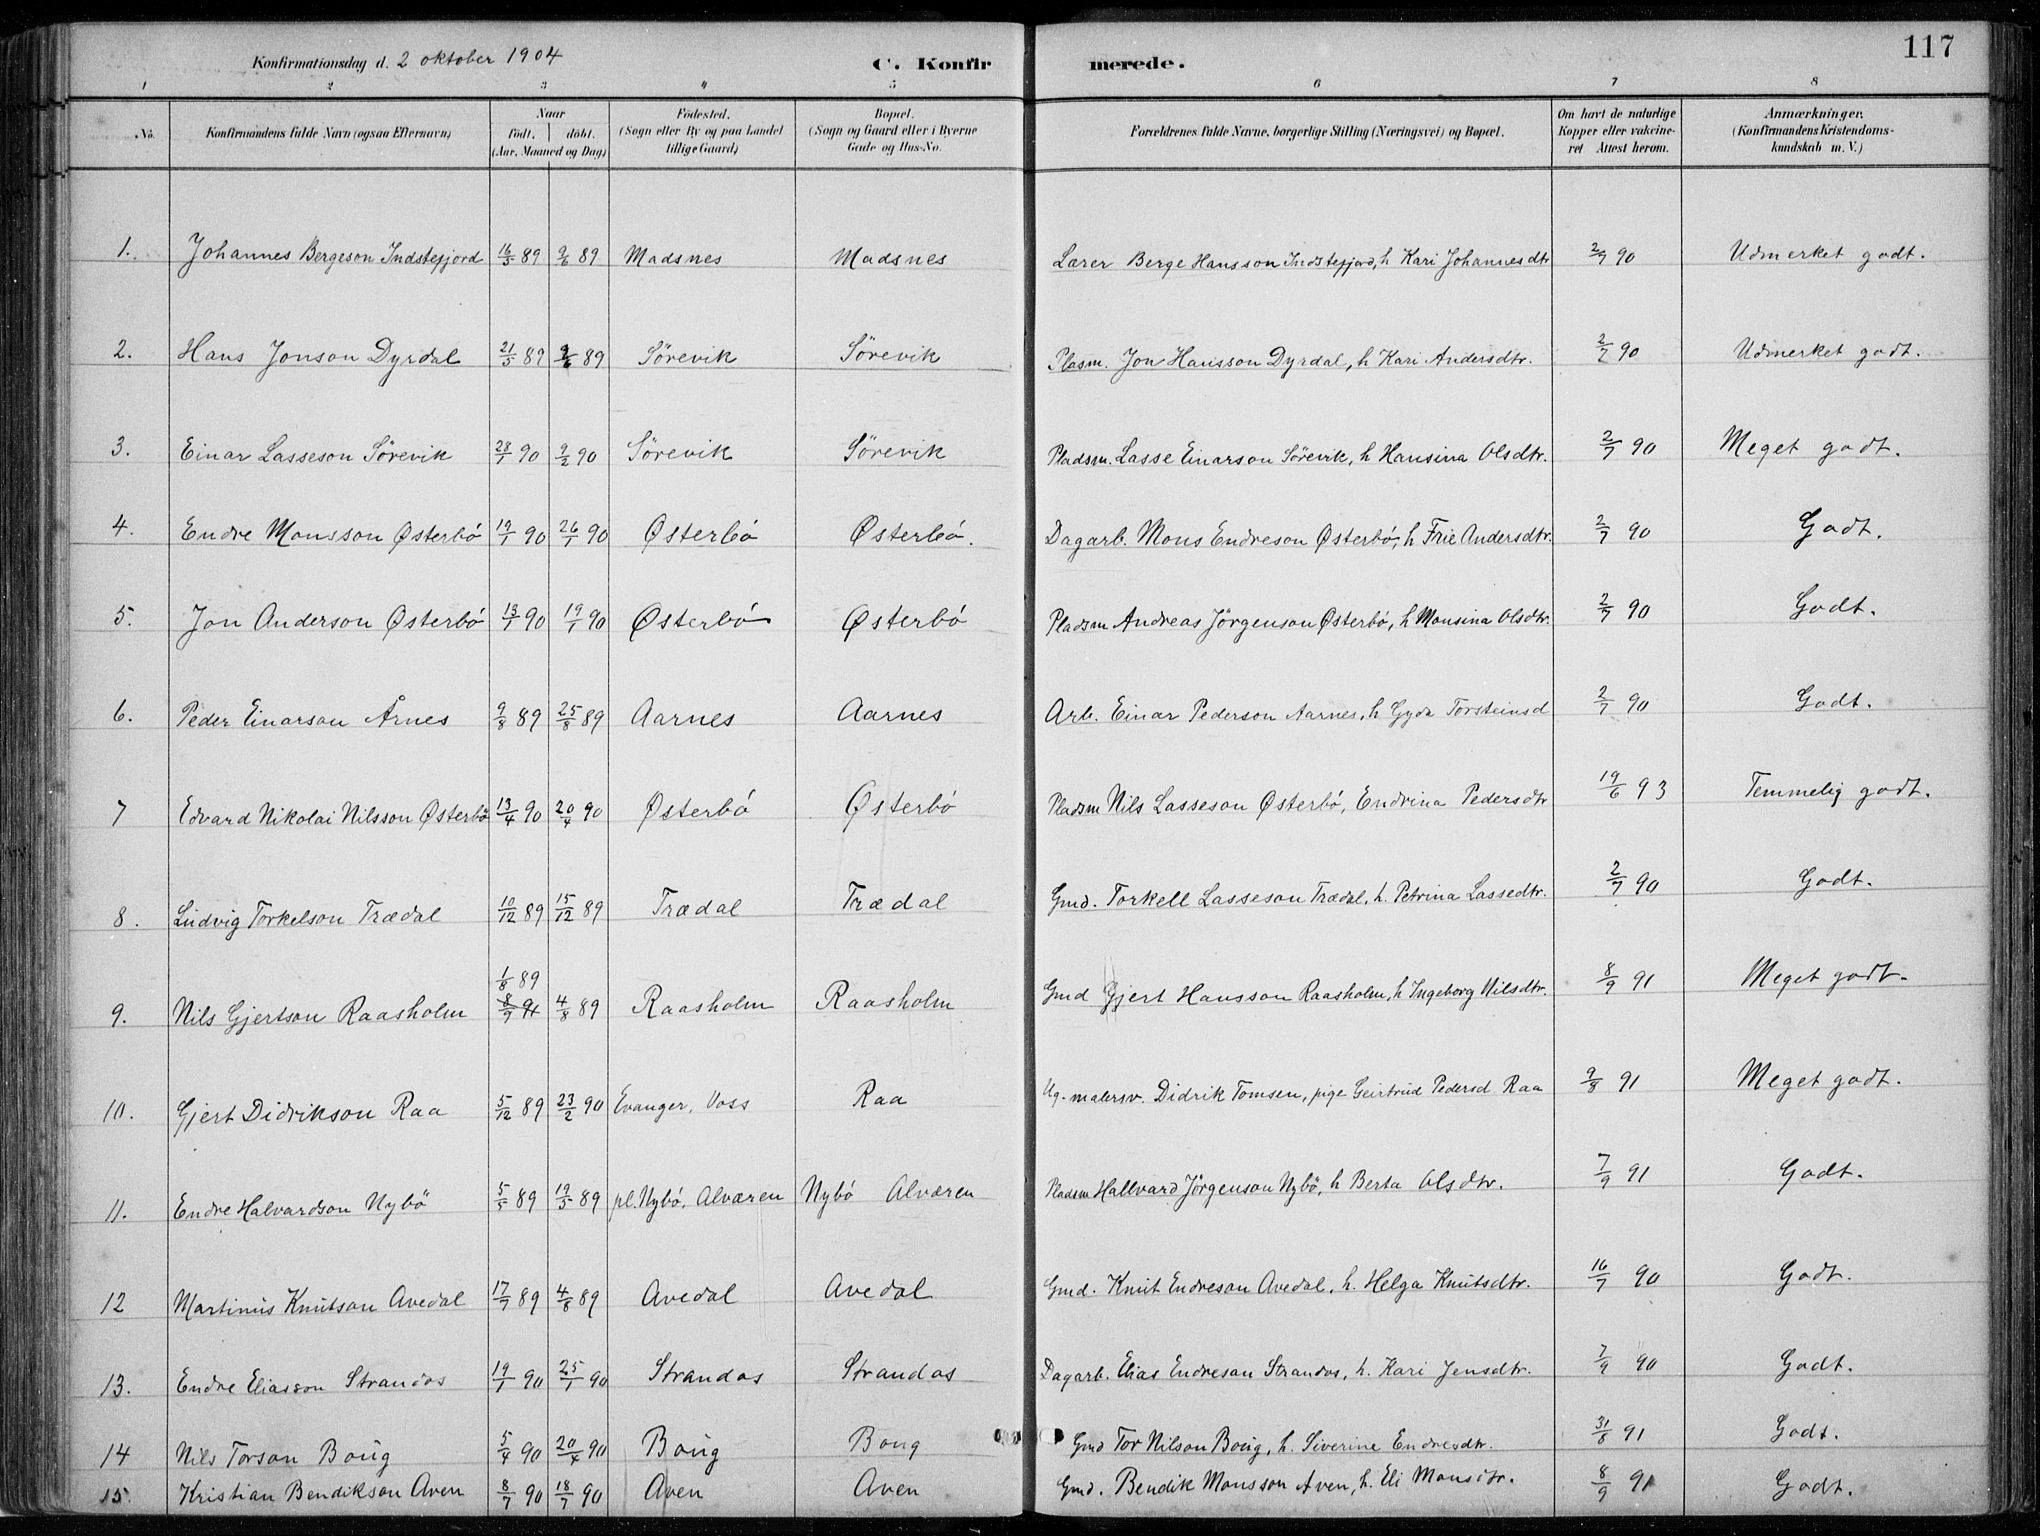 117
Konfirmationsdag d. 2 oktober 1904 C. Konfir merede.
1 2 3 4 5 6 7 8
No. Konfirmandens fulde Navn (ogsaa Efternavn) Naar født. døbt. (Aar, Maaned og Dag) Fødested. (Sogn eller By og paa Landet tillige Gaard) Bopæl. (Sogn og Gaard eller i Byerne Gade og Hus-No. Forældrenes fulde Navne, borgerlige Stilling (Næringsvei) og Bopæl. Om havt de naturlige Kopper eller vakcineret Attest herom. Anmærkninger. (Konfirmandens Kristendomskundskab m. V.)
1. Johannes Bergeson Indstefjord 16/5 89 9/6 89 Madsnes Madsnes Lærer Berge Hansson Indstefjord, h Kari Johannesdtr 2/7 90 Udmerket godt.
2. Hans Jonson Dyrdal 21/5 89 9/6 89 Sörevik Sörevik Plasm. Jon Hansson Dyrdal, h Kari Andersdtr. 2/7 90 Udmerket godt.
3. Einar Lasseson Sörevik 28/1 90 9/2 90 Sörevik Sörevik Pladsm. Lasse Einarson Sörevik, h Hansina Olsdtr. 2/7 90 Meget godt.
4. Endre Monsson Østerbó 19/1 90 26/1 90 Østerbó Østerbó. Dagarb. Mons Endreson Østerbó, h Frie Andersdtr. 2/7 90 Godt.
5. Jon Anderson Østerbó 13/1 90 19/1 90 Østerbó Østerbó Pladsm Andreas Jörgenson Østerbó, h Monsina Olsdtr. 2/7 90 Godt.
6. Peder Einarson Årnes 9/8 89 25/8 89 Aarnes Aarnes Arb. Einar Pederson Aarnes, h Gyda Torsteinsd 2/7 90 Godt.
7 Edvard Nikolai Nilsson Østerbó 13/4 90 20/4 90 Østerbó Østerbó Pladsm Nils Lasseson Østerbó, Endrina Pedersdtr 19/6 93 Temmelig godt.
8. Ludvig Torkelson Trædal 10/12 89 15/12 89 Trædal Trædal Gmd. Torkell Lasseson Trædal, h. Petrina Lassedtr. 2/7 90 Godt.
1/8 89
9. Nils Gjertson Raasholm 8/9 91 4/8 89 Raasholm Raasholm Gmd Gjert Hansson Raasholm, h Ingeborg Nilsdtr. 8/9 91 Meget godt.
10. Gjert Didrikson Raa 5/12 89 23/2 90 Evanger, Voss Raa Ug. malersv. Didrik Tomsen, pige Geirtrud Pedersd Raa 9/8 91 Meget godt.
11. Endre Halvardson Nybö 5/5 89 19/5 89 pl. Nybó, Alværen Nybó Alværen Pladsm Hallvard Jörgenson Nybö, h Berta Olsdtr. 7/9 91 Godt.
12 Martinus Knutson Avedal 17/7 89 4/8 89 Avedal Avedal Gmd. Knut Endreson Avedal, h. Helga Knutsdtr. 16/7 90 Godt.
13. Endre Eliasson Strandos 19/1 90 25/1 90 Strandos Strandos Dagarb. Elias Endreson Strandos, h. Kari Jensdtr. 7/9 90 Godt.
14 Nils Torson Boug 5/4 90 20/4 90 Boug Boug Gmd Tor Nilson Boug, h. Siverine Endresdtr. 31/8 91 Godt.
15. Kristian Bendikson Aven 8/7 90 18/7 90 Aven Aven Gmd. Bendik Monsson Aven, h. Eli Monsdtr. 8/9 91 Godt.